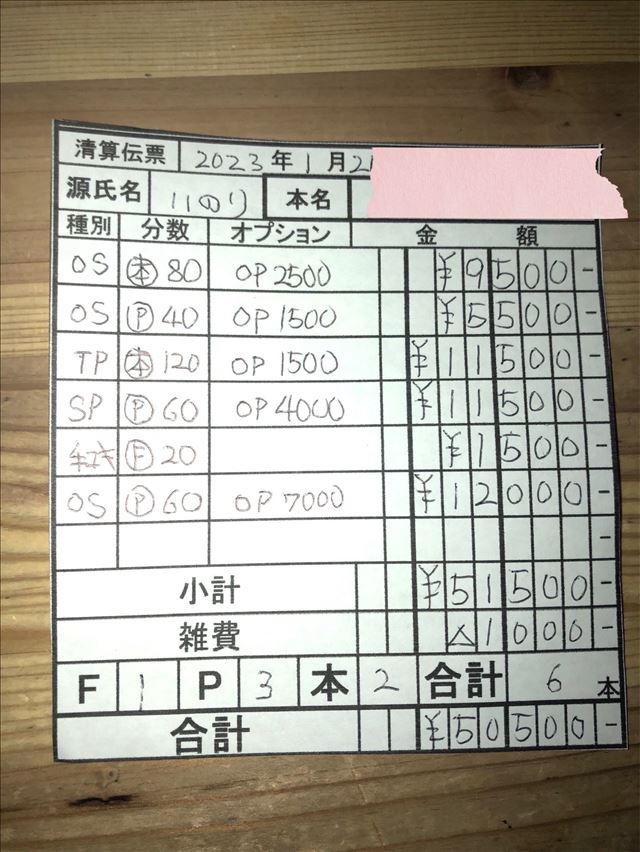 清算伝票 2023年1月2
源氏名 いのり 本名
種別 分数 オプション 金額
OS 本 80 OP 2500 ¥9500-
OS P 40 OP 1500 ¥5500-
TP 本 120 OP 1500 ¥11500-
SP P 60 OP 4000 ¥11500-
F 20 ¥1500-
OS P 60 OP 7000 ¥12000-
-
小計 ¥51500-
雑費 △1000-
F 1 P 3 本 2 合計 6本
合計 ¥50500-